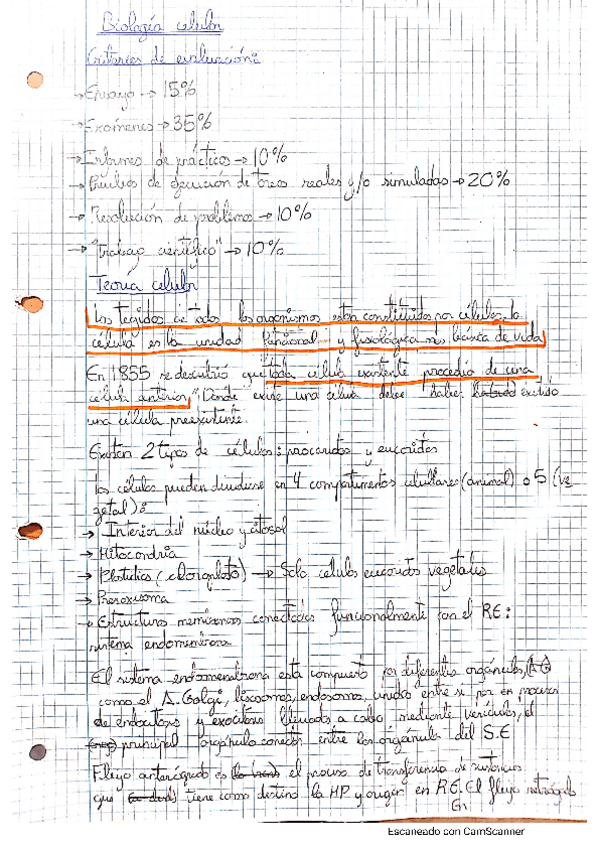 Biología celular
Criterios de evaluación:
→ Ensayo → 15%
→ Exámenes → 35%
→ Informes de prácticas → 10%
→ Pruebas de ejecución de tareas reales y/o simuladas → 20%
→ Resolución de problemas → 10%
→ "Trabajo científico" → 10%
Teoría celular
Los tegidos de todos los organismos están constituidos por células, la
célula es la unidad funcional y fisiológica más básica de vida
En 1855 se descubrió que toda célula existente procedía de una
célula anterior, "Donde existe una célula debe haber habido existido
una célula preexistente.
Existen 2 tipos de células: procariotas y eucariotas
Las células pueden dividirse en 4 compartimentos celulares (animal) o 5 (ve
getal):
→ Interior del núcleo y citosol
→ Mitocondria
→ Plastidios (cloroplasto) → Solo células eucariotas vegetales
→ Peroxisoma
→ Estructuras membranosas conectadas funcionalmente con el RE:
sistema endomembrana
El sistema endomembrana está compuesto por diferentes orgánulos,
como el A. Golgi, lisosomas, endosomas, unidos entre sí por en procesos
de endocitosis y exocitosis llevados a cabo mediante vesículas, el
principal orgánulo conector entre los orgánulos del S.E
Flujo anterógrado es el proceso de transferencia de sustancias
que tiene como destino la MP y origen en RE. El flujo retrógrado
Escaneado con CamScanner